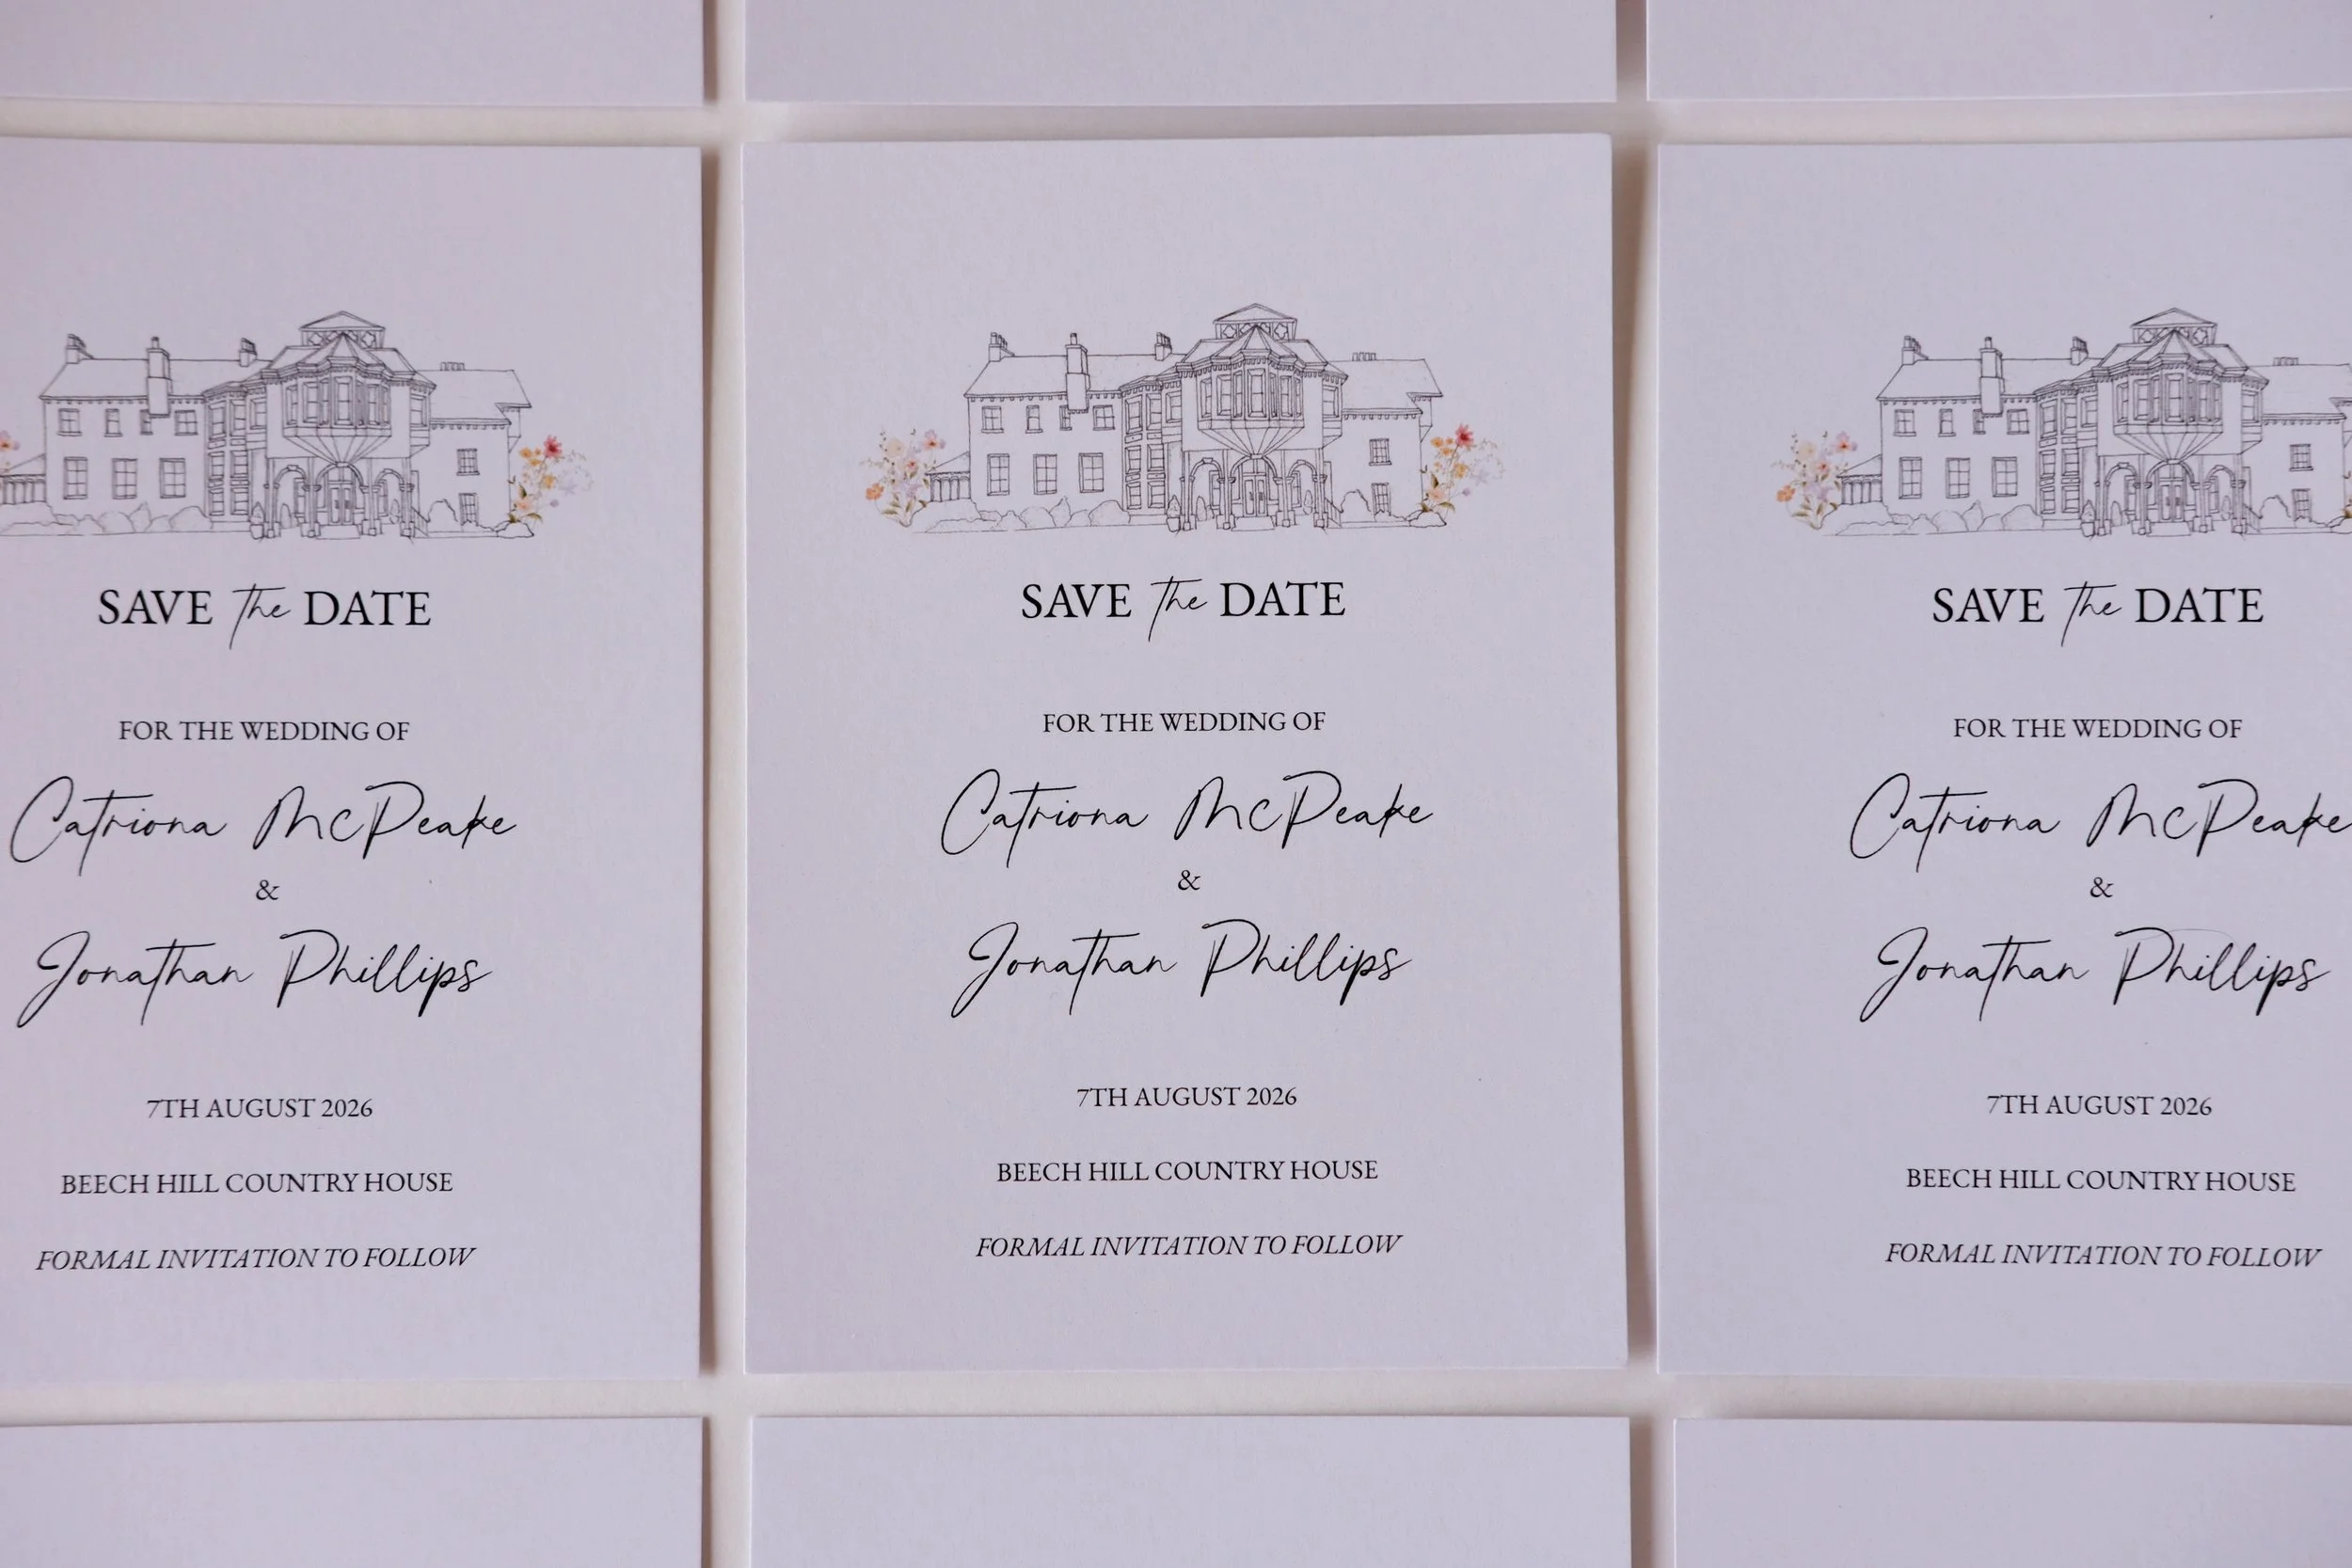 SAVE the DATE
FOR THE WEDDING OF
Catriona McPeake
&
Jonathan Phillips
7TH AUGUST 2026
BEECH HILL COUNTRY HOUSE
FORMAL INVITATION TO FOLLOW
SAVE the DATE
FOR THE WEDDING OF
Catriona McPeake
&
Jonathan Phillips
7TH AUGUST 2026
BEECH HILL COUNTRY HOUSE
FORMAL INVITATION TO FOLLOW
SAVE the DATE
FOR THE WEDDING OF
Catriona McPeake
&
Jonathan Phillips
7TH AUGUST 2026
BEECH HILL COUNTRY HOUSE
FORMAL INVITATION TO FOLLOW